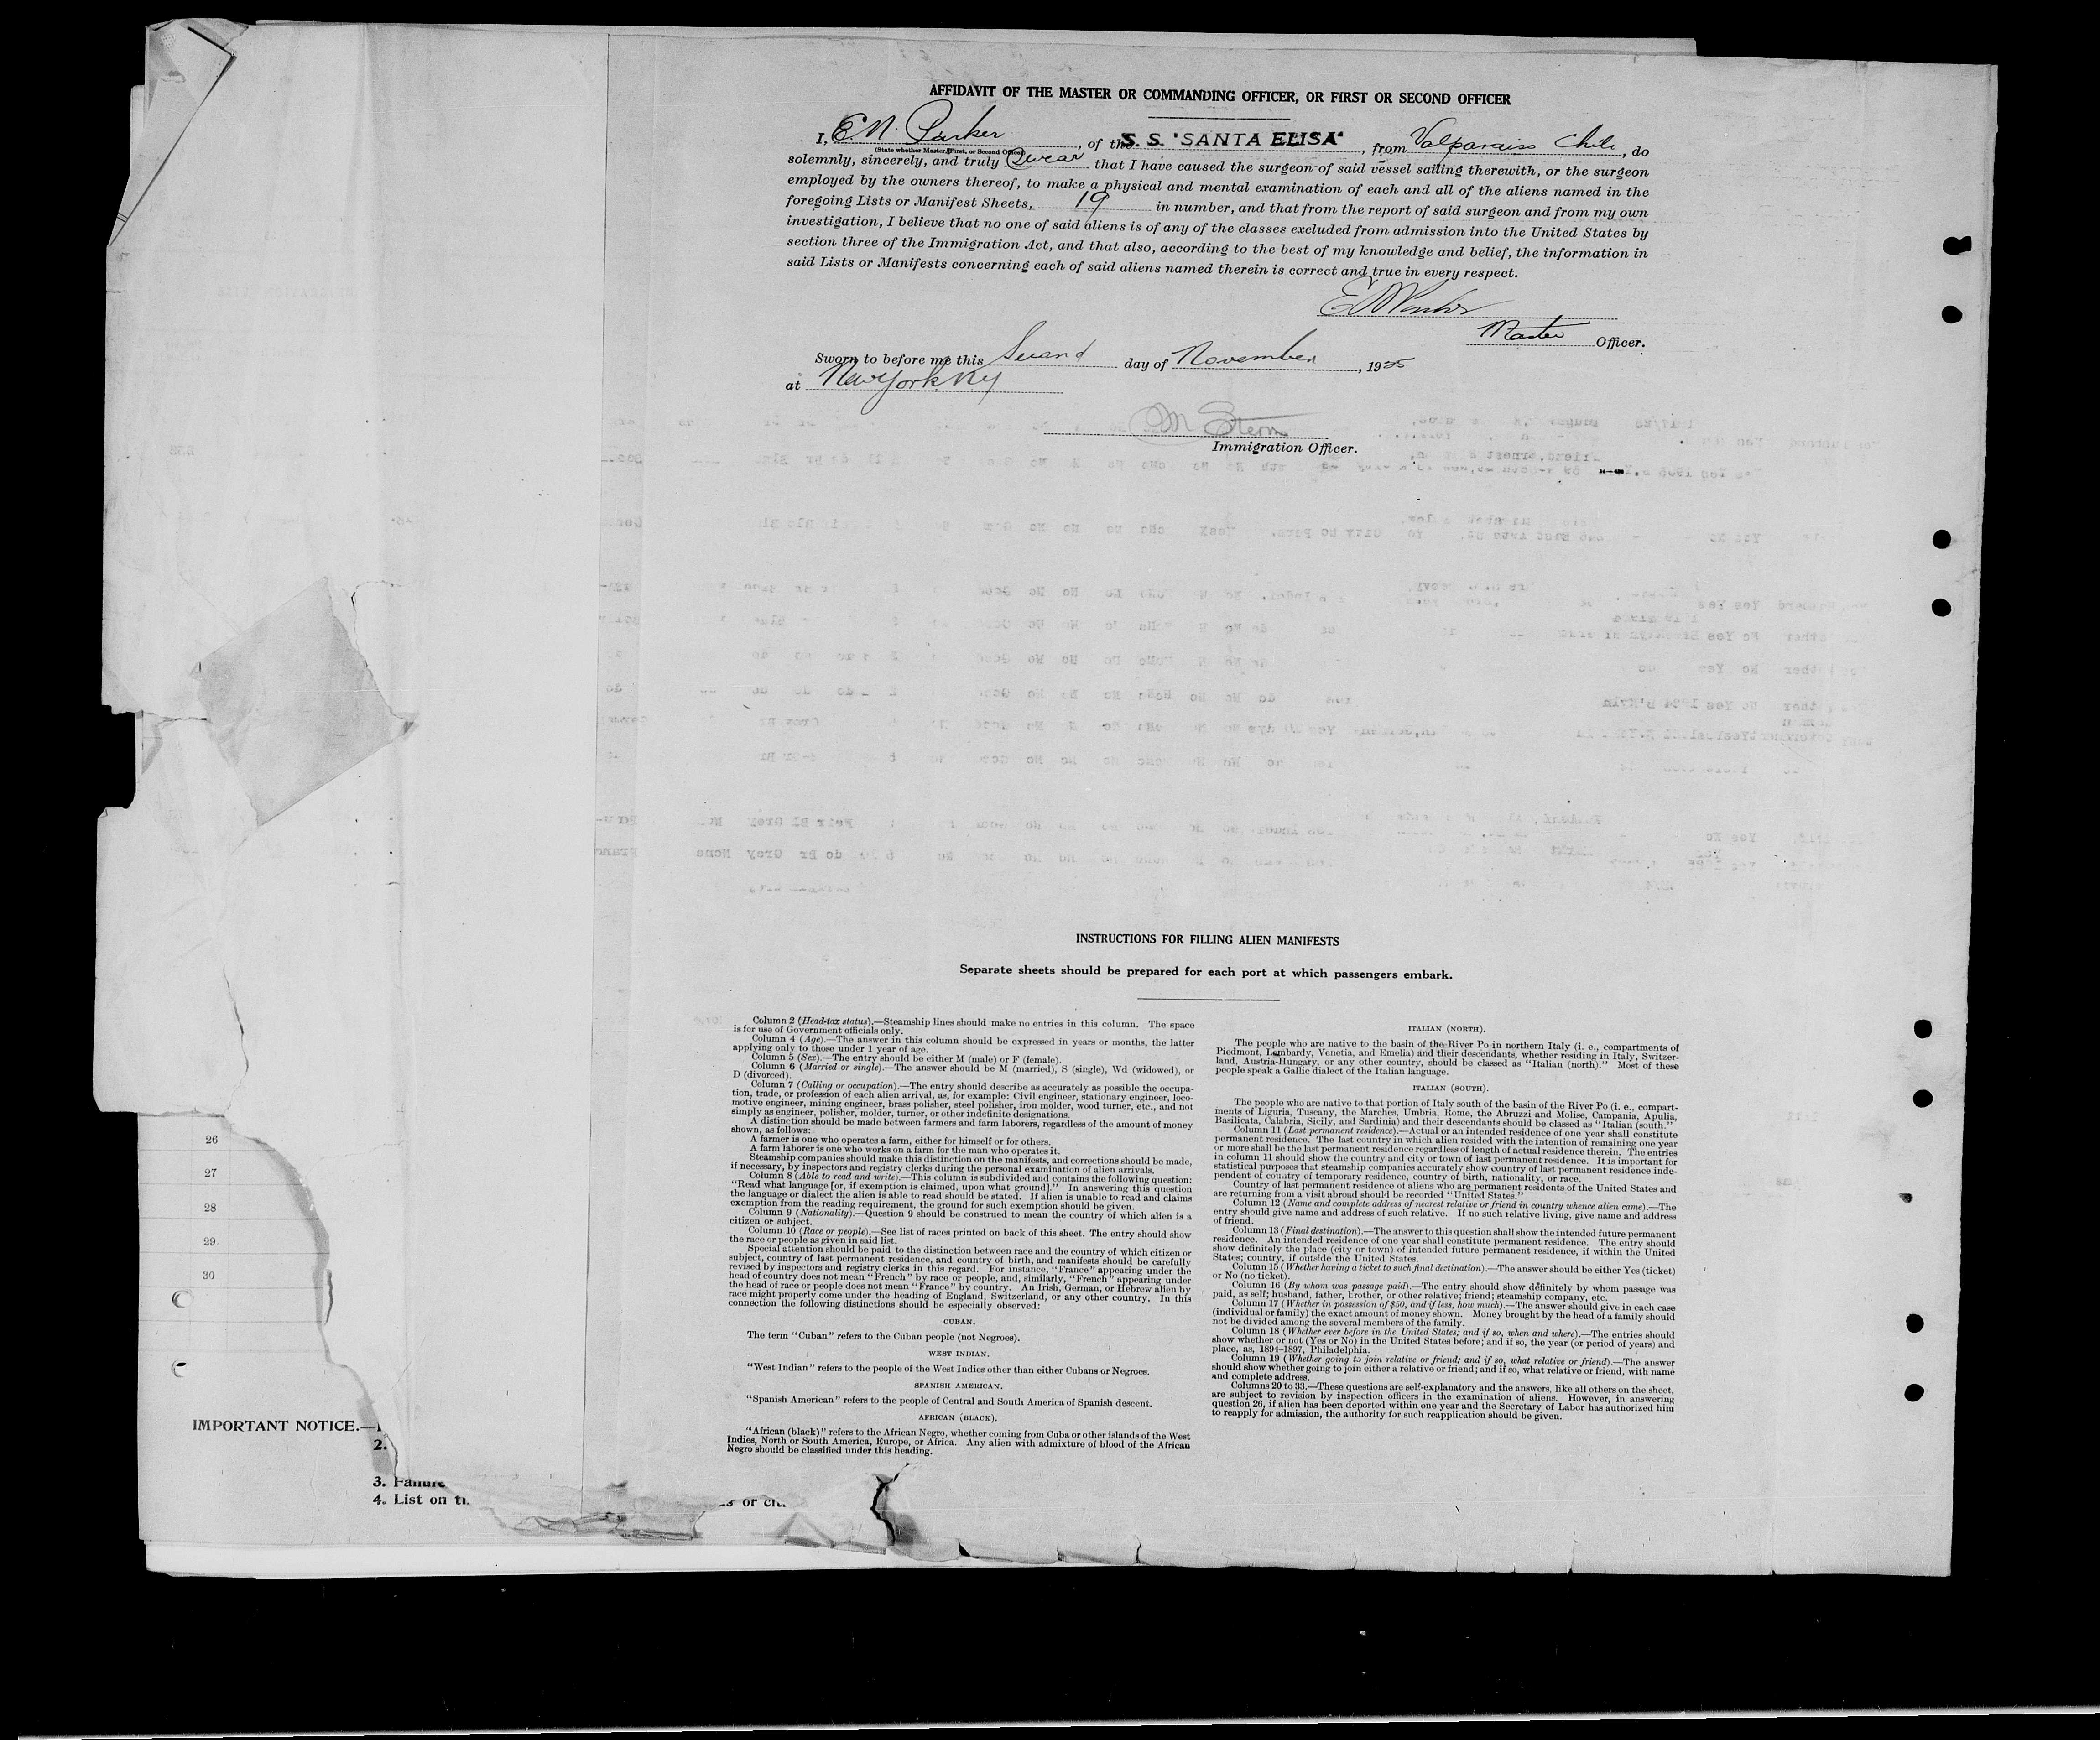 AFFIDAVIT OF THE MASTER OR COMMANDING OFFICER, OR FIRST OR SECOND OFFICER
I, E N. Parker, of the S. S. "SANTA ELISA", from Valparaiso Chile, do
(State whether Master, First, or Second Officer)
solemnly, sincerely, and truly Swear that I have caused the surgeon of said vessel sailing therewith, or the surgeon
employed by the owners thereof, to make a physical and mental examination of each and all of the aliens named in the
foregoing Lists or Manifest Sheets, 19 in number, and that from the report of said surgeon and from my own
investigation, I believe that no one of said aliens is of any of the classes excluded from admission into the United States by
section three of the Immigration Act, and that also, according to the best of my knowledge and belief, the information in
said Lists or Manifests concerning each of said aliens named therein is correct and true in every respect.
E N Parker
Master Officer.
Sworn to before me this Second day of November, 1925
at New York NY
M Stern
Immigration Officer.
INSTRUCTIONS FOR FILLING ALIEN MANIFESTS
Separate sheets should be prepared for each port at which passengers embark.
Column 2 (Head-tax status).—Steamship lines should make no entries in this column. The space
is for use of Government officials only.
Column 4 (Age).—The answer in this column should be expressed in years or months, the latter
applying only to those under 1 year of age.
Column 5 (Sex).—The entry should be either M (male) or F (female).
Column 6 (Married or single).—The answer should be M (married), S (single), Wd (widowed), or
D (divorced).
Column 7 (Calling or occupation).—The entry should describe as accurately as possible the occupa-
tion, trade, or profession of each alien arrival, as, for example: Civil engineer, stationary engineer, loco-
motive engineer, mining engineer, brass polisher, steel polisher, iron molder, wood turner, etc., and not
simply as engineer, polisher, molder, turner, or other indefinite designations.
A distinction should be made between farmers and farm laborers, regardless of the amount of money
shown, as follows:
A farmer is one who operates a farm, either for himself or for others.
A farm laborer is one who works on a farm for the man who operates it.
Steamship companies should make this distinction on the manifests, and corrections should be made,
if necessary, by inspectors and registry clerks during the personal examination of alien arrivals.
Column 8 (Able to read and write).—This column is subdivided and contains the following question:
"Read what language [or, if exemption is claimed, upon what ground]." In answering this question
the language or dialect the alien is able to read should be stated. If alien is unable to read and claims
exemption from the reading requirement, the ground for such exemption should be given.
Column 9 (Nationality).—Question 9 should be construed to mean the country of which alien is a
citizen or subject.
Column 10 (Race or people).—See list of races printed on back of this sheet. The entry should show
the race or people as given in said list.
Special attention should be paid to the distinction between race and the country of which citizen or
subject, country of last permanent residence, and country of birth, and manifests should be carefully
revised by inspectors and registry clerks in this regard. For instance, "France" appearing under the
head of country does not mean "French" by race or people, and, similarly, "French" appearing under
the head of race or people does not mean "France" by country. An Irish, German, or Hebrew alien by
race might properly come under the heading of England, Switzerland, or any other country. In this
connection the following distinctions should be especially observed:
CUBAN.
The term "Cuban" refers to the Cuban people (not Negroes).
WEST INDIAN.
"West Indian" refers to the people of the West Indies other than either Cubans or Negroes.
SPANISH AMERICAN.
"Spanish American" refers to the people of Central and South America of Spanish descent.
AFRICAN (BLACK).
"African (black)" refers to the African Negro, whether coming from Cuba or other islands of the West
Indies, North or South America, Europe, or Africa. Any alien with admixture of blood of the African
Negro should be classified under this heading.
ITALIAN (NORTH).
The people who are native to the basin of the River Po in northern Italy (i. e., compartments of
Piedmont, Lombardy, Venetia, and Emelia) and their descendants, whether residing in Italy, Switzer-
land, Austria-Hungary, or any other country, should be classed as "Italian (north)." Most of these
people speak a Gallic dialect of the Italian language.
ITALIAN (SOUTH).
The people who are native to that portion of Italy south of the basin of the River Po (i. e., compart-
ments of Liguria, Tuscany, the Marches, Umbria, Rome, the Abruzzi and Molise, Campania, Apulia,
Basilicata, Calabria, Sicily, and Sardinia) and their descendants should be classed as "Italian (south."
Column 11 (Last permanent residence).—Actual or an intended residence of one year shall constitute
permanent residence. The last country in which alien resided with the intention of remaining one year
or more shall be the last permanent residence regardless of length of actual residence therein. The entries
in column 11 should show the country and city or town of last permanent residence. It is important for
statistical purposes that steamship companies accurately show country of last permanent residence inde-
pendent of country of temporary residence, country of birth, nationality, or race.
Country of last permanent residence of aliens who are permanent residents of the United States and
are returning from a visit abroad should be recorded "United States."
Column 12 (Name and complete address of nearest relative or friend in country whence alien came).—The
entry should give name and address of such relative. If no such relative living, give name and address
of friend.
Column 13 (Final destination).—The answer to this question shall show the intended future permanent
residence. An intended residence of one year shall constitute permanent residence. The entry should
show definitely the place (city or town) of intended future permanent residence, if within the United
States; country, if outside the United States.
Column 15 (Whether having a ticket to such final destination).—The answer should be either Yes (ticket)
or No (no ticket).
Column 16 (By whom was passage paid).—The entry should show definitely by whom passage was
paid, as self; husband, father, brother, or other relative; friend; steamship company, etc.
Column 17 (Whether in possession of $50, and if less, how much).—The answer should give in each case
(individual or family) the exact amount of money shown. Money brought by the head of a family should
not be divided among the several members of the family.
Column 18 (Whether ever before in the United States; and if so, when and where).—The entries should
show whether or not (Yes or No) in the United States before; and if so, the year (or period of years) and
place, as, 1894-1897, Philadelphia.
Column 19 (Whether going to join relative or friend; and if so, what relative or friend).—The answer
should show whether going to join either a relative or friend; and if so, what relative or friend, with name
and complete address.
Columns 20 to 33.—These questions are self-explanatory and the answers, like all others on the sheet,
are subject to revision by inspection officers in the examination of aliens. However, in answering
question 26, if alien has been deported within one year and the Secretary of Labor has authorized him
to reapply for admission, the authority for such reapplication should be given.
26
27
28
29
30
IMPORTANT NOTICE.—
2.
3. Failure
4. List on